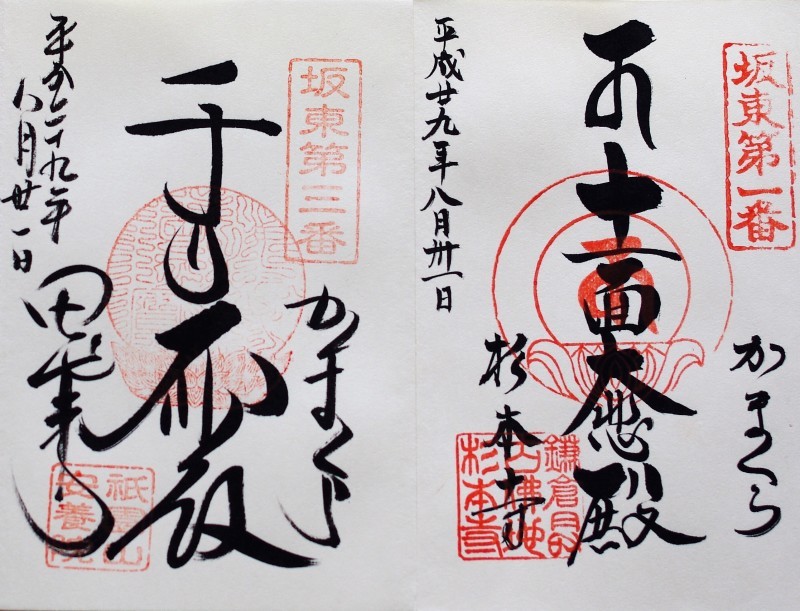 坂東第一番
かまくら
十一面大悲殿
杉本寺
鎌倉最古佛地
杉本寺
平成廿九年八月卅一日
坂東第三番
かまくら
千手
殿
田代
祇園山
安養院
平成二十九年
八月廿一日